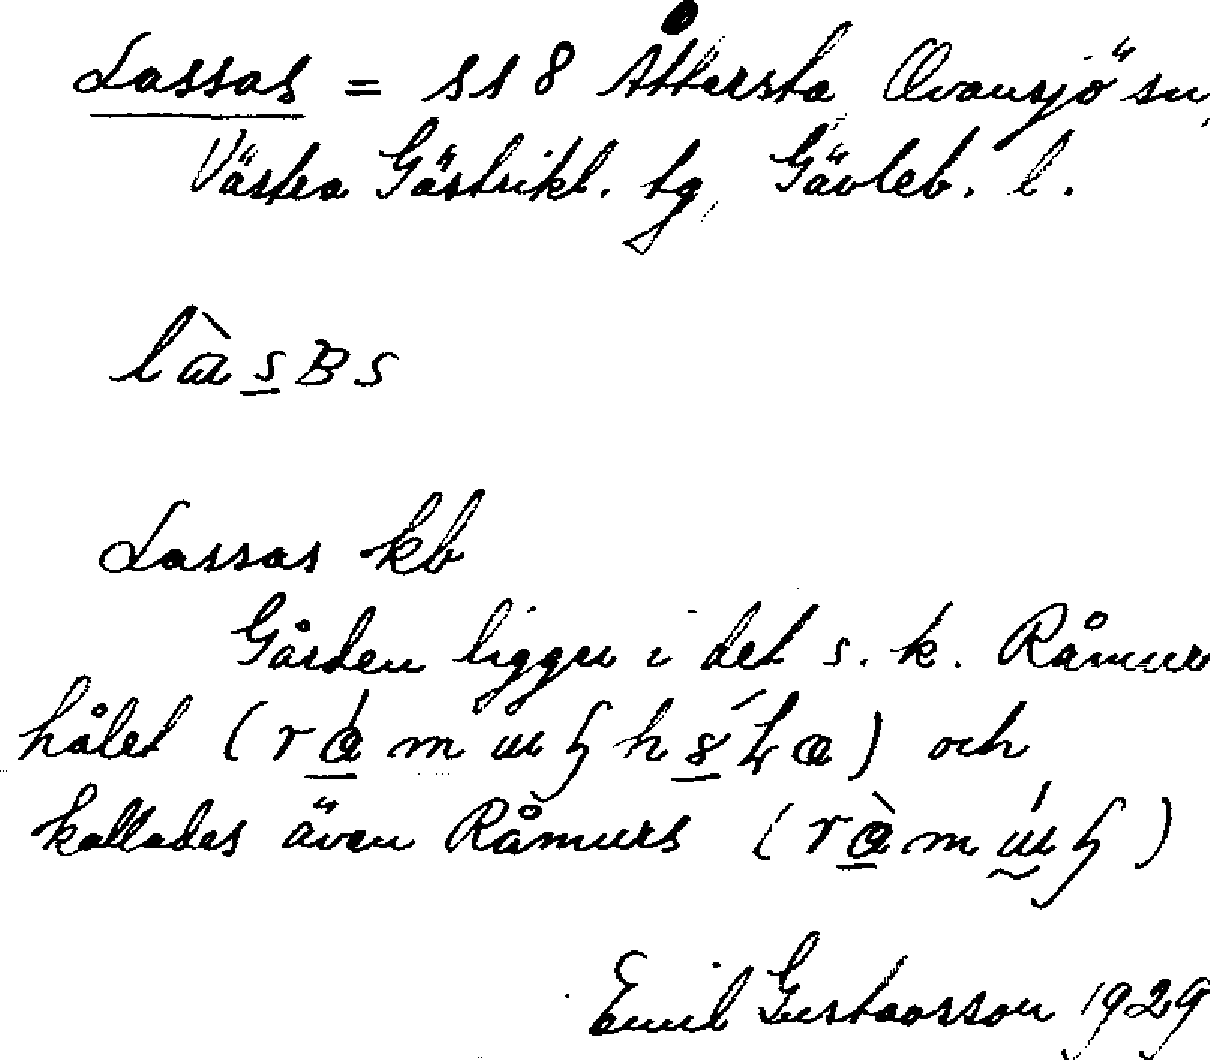 Lassas = ss 8 Åttersta, Ovansjö sn,
Västra Gästrikl. tg, Gävleb. l.
Lassas kb
Gården ligger i det s. k. Råmurs
hålet ( ) och
kallades även Råmurs ( )
Emil Gustavsson 1929